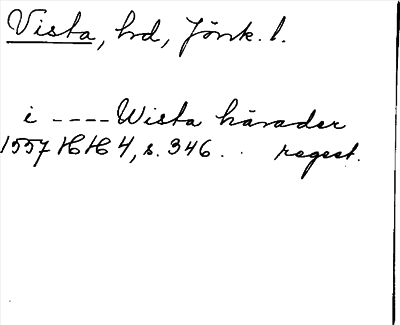 Vista, hd, Jönk. l.
i ---- Wista härader
1557 HH 4, s. 346. . regest.